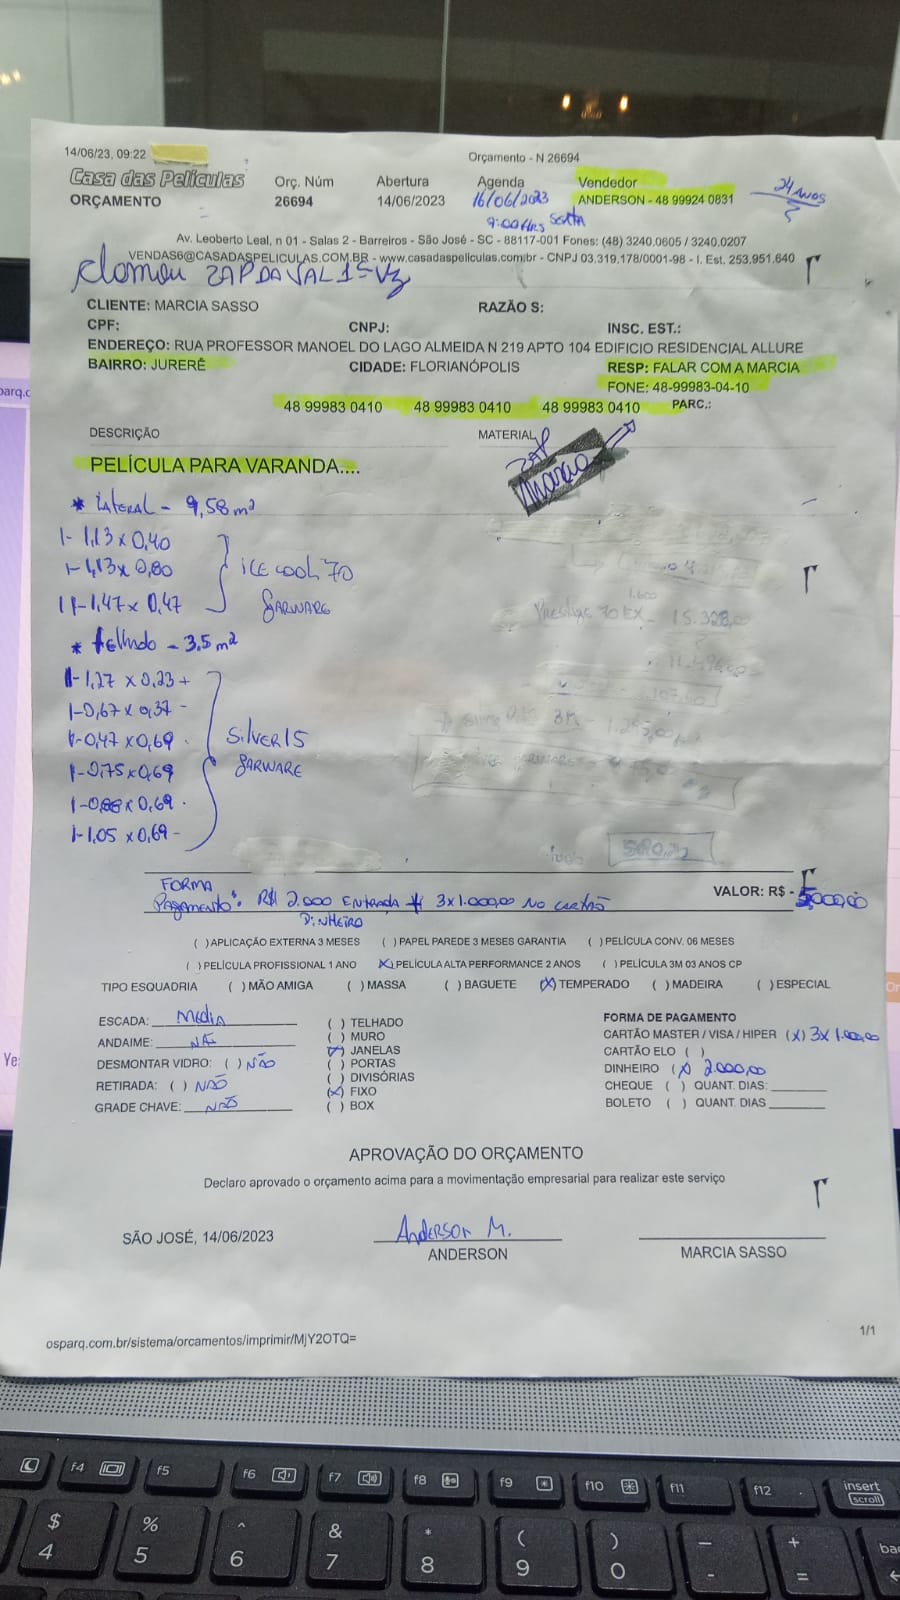 14/06/23, 09:22
Orçamento - N 26694
Casa das Películas
Orç. Núm
Abertura
Agenda
Vendedor
ORÇAMENTO
26694
14/06/2023
16/06/2023
ANDERSON - 48 99924 0831
24 ANOS
9:00 HRS SEXTA
Av. Leoberto Leal, n 01 - Salas 2 - Barreiros - São José - SC - 88117-001 Fones: (48) 3240.0605 / 3240.0207
VENDAS6@CASADASPELICULAS.COM.BR - www.casadaspeliculas.com.br - CNPJ 03.319.178/0001-98 - I. Est. 253.951.640
ZAP DA VAL 1ª VZ
CLIENTE: MARCIA SASSO
RAZÃO S:
CPF:
CNPJ:
INSC. EST.:
ENDEREÇO: RUA PROFESSOR MANOEL DO LAGO ALMEIDA N 219 APTO 104 EDIFICIO RESIDENCIAL ALLURE
BAIRRO: JURERÊ
CIDADE: FLORIANÓPOLIS
RESP: FALAR COM A MARCIA
FONE: 48-99983-04-10
48 99983 0410 48 99983 0410 48 99983 0410
PARC.:
DESCRIÇÃO
MATERIAL
ZAP
Marcia
PELÍCULA PARA VARANDA....
* LATERAL - 9,58 m²
1- 1,13 x 0,40
1- 1,13 x 0,80
ICE COOL 70
11- 1,47 x 0,47
GARWARE
1.600
Prestige 70 EX - 15.328,00
* telhado - 3,5 m²
1- 1,27 x 0,23 +
1- 0,67 x 0,37 -
1- 0,47 x 0,69 -
SILVER 15
1- 0,75 x 0,69
GARWARE
1- 0,88 x 0,69 -
1- 1,05 x 0,69 -
FORMA
Pagamento: R$ 2.000 ENTRADA + 3x1.000,00 NO CARTÃO
DINHEIRO
VALOR: R$ - 5.000,00
( ) APLICAÇÃO EXTERNA 3 MESES ( ) PAPEL PAREDE 3 MESES GARANTIA ( ) PELÍCULA CONV. 06 MESES
( ) PELÍCULA PROFISSIONAL 1 ANO (X) PELÍCULA ALTA PERFORMANCE 2 ANOS ( ) PELÍCULA 3M 03 ANOS CP
TIPO ESQUADRIA ( ) MÃO AMIGA ( ) MASSA ( ) BAGUETE (X) TEMPERADO ( ) MADEIRA ( ) ESPECIAL
ESCADA: Media
ANDAIME: NÃO
DESMONTAR VIDRO: ( ) NÃO
RETIRADA: ( ) NÃO
GRADE CHAVE: NÃO
( ) TELHADO
( ) MURO
(X) JANELAS
( ) PORTAS
( ) DIVISÓRIAS
(X) FIXO
( ) BOX
FORMA DE PAGAMENTO
CARTÃO MASTER / VISA / HIPER (X) 3x 1.000,00
CARTÃO ELO ( )
DINHEIRO (X) 2.000,00
CHEQUE ( ) QUANT. DIAS:
BOLETO ( ) QUANT. DIAS
APROVAÇÃO DO ORÇAMENTO
Declaro aprovado o orçamento acima para a movimentação empresarial para realizar este serviço
SÃO JOSÉ, 14/06/2023
Anderson M.
ANDERSON
MARCIA SASSO
osparq.com.br/sistema/orcamentos/imprimir/MjY2OTQ=
1/1
f4 f5 f6 f7 f8 f9 f10 f11 f12 insert
scroll
$ % ^ & * ( ) — +
4 5 6 7 8 9 0 - =